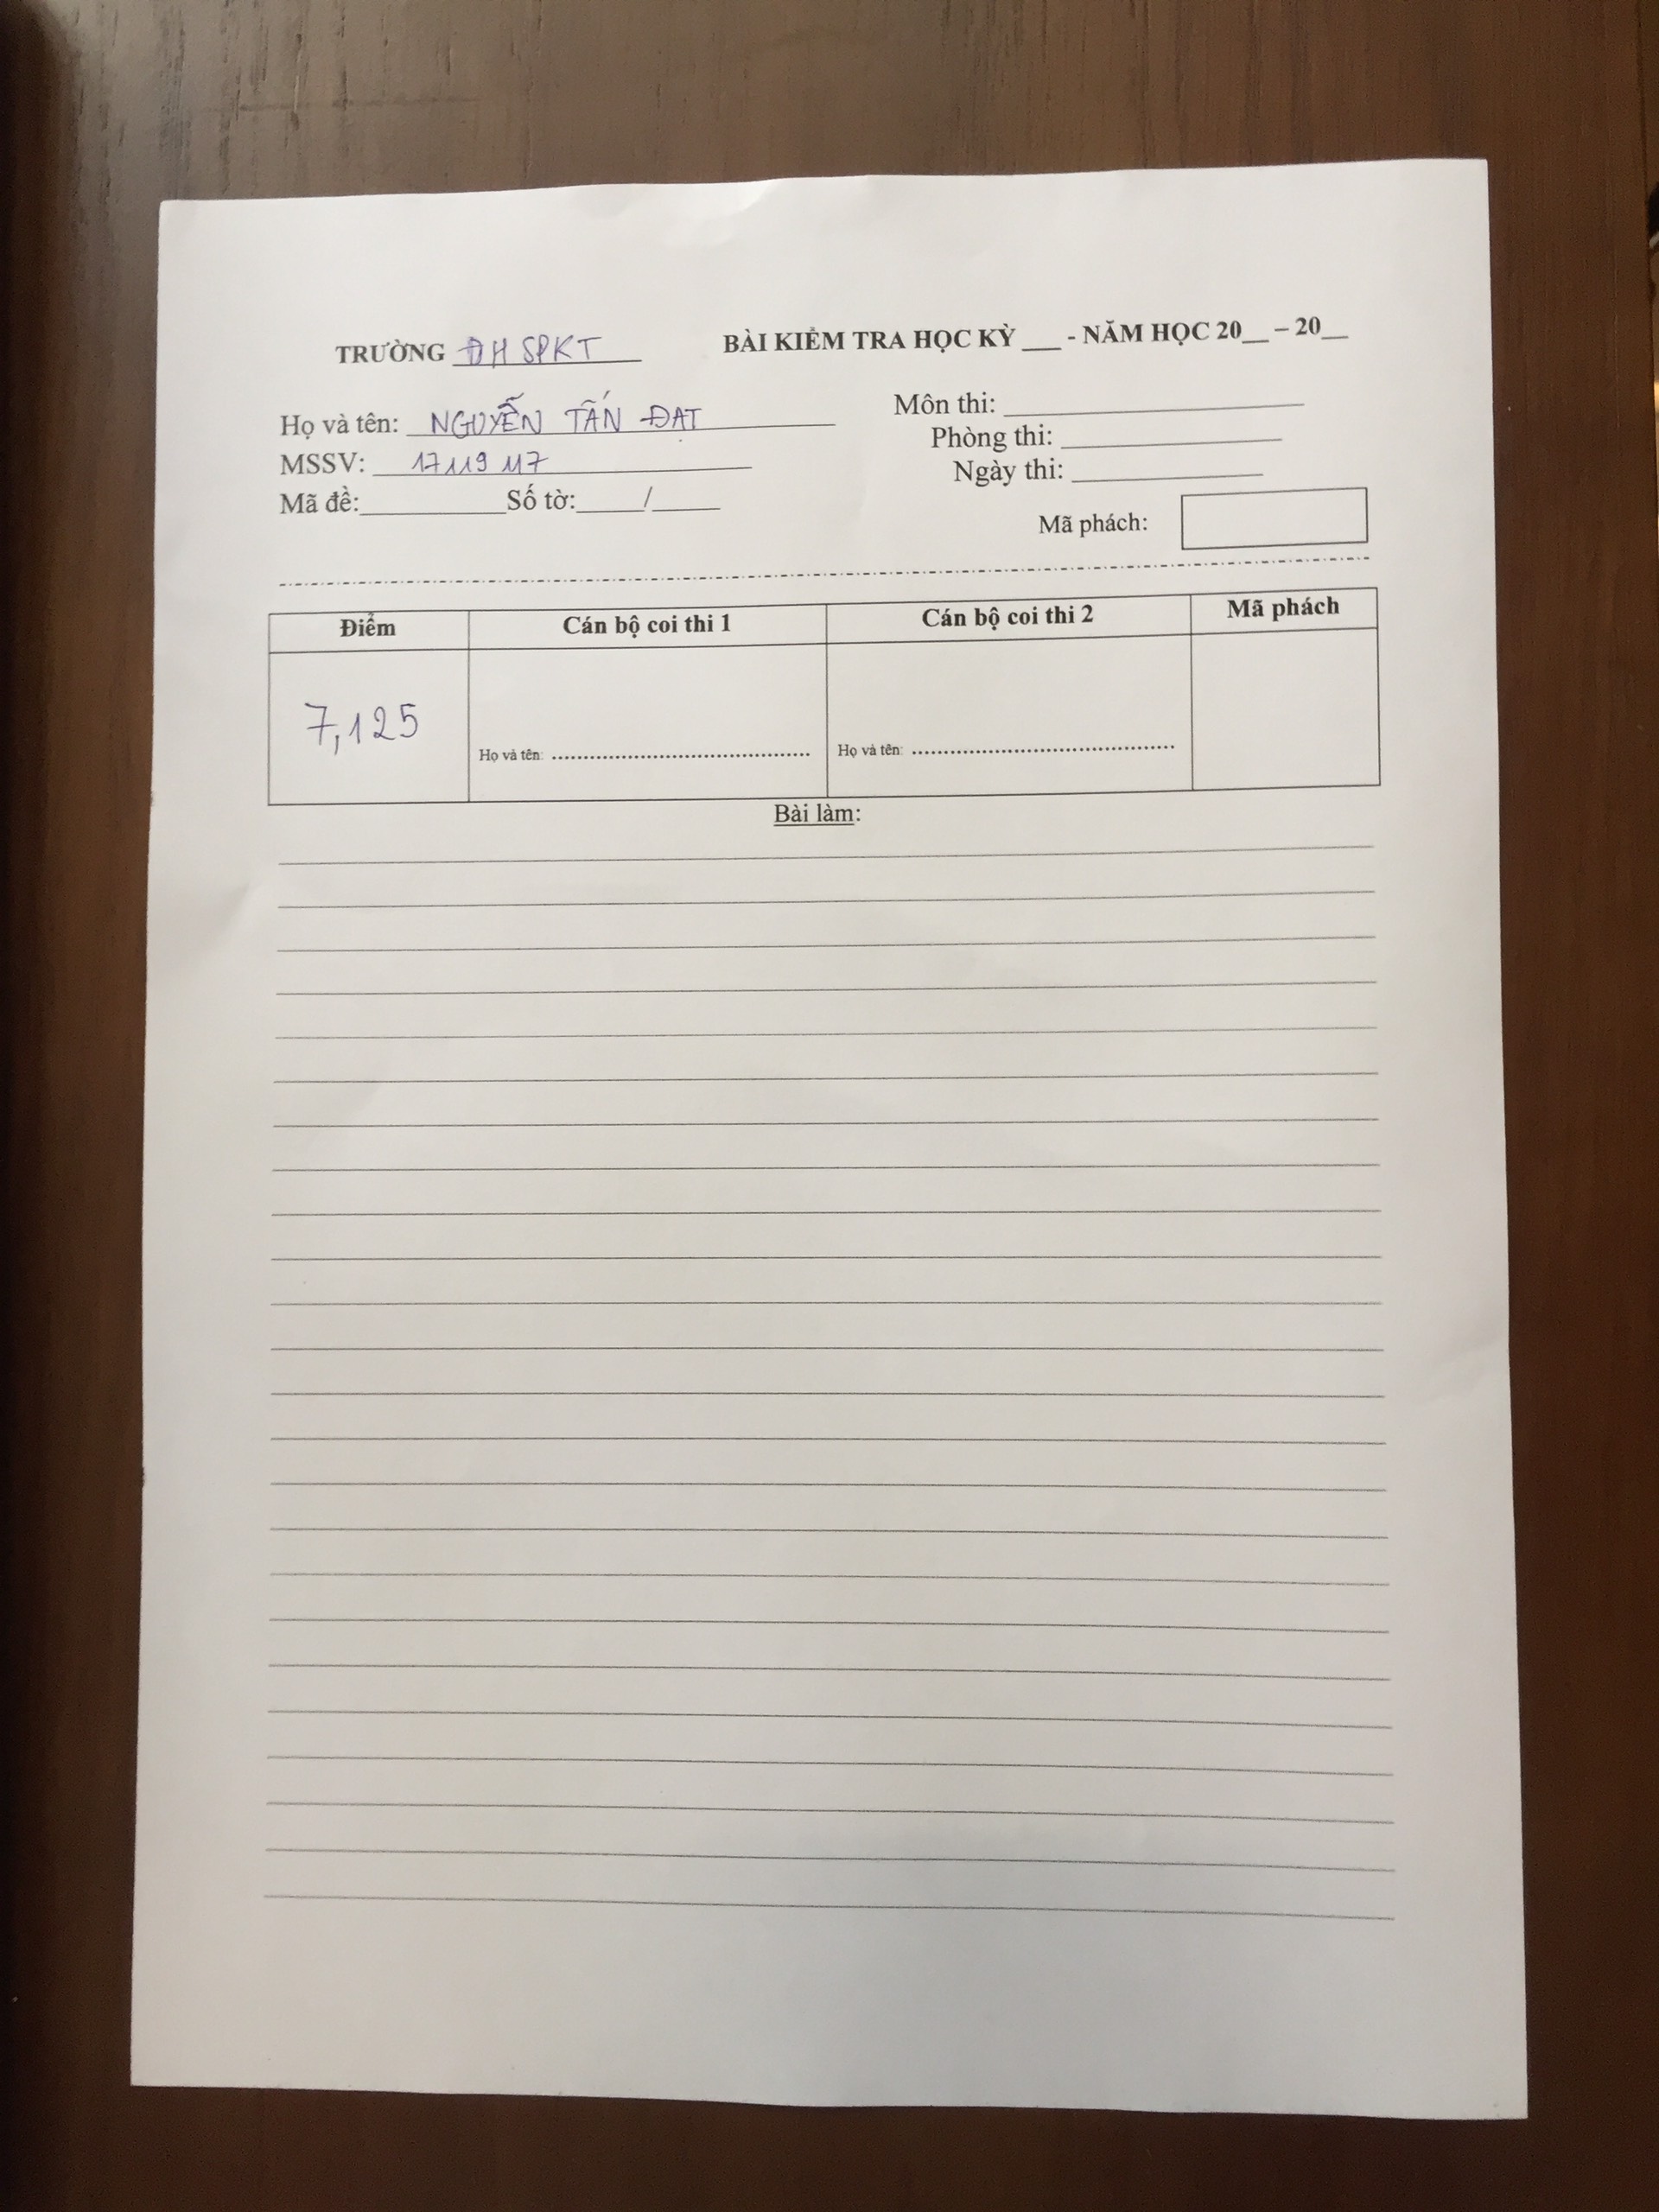 TRƯỜNG ĐH SPKT BÀI KIỂM TRA HỌC KỲ ___ - NĂM HỌC 20__ – 20__
Họ và tên: NGUYỄN TẤN ĐẠT Môn thi: ___
MSSV: 17119117 Phòng thi: ___
Mã đề: ___ Số tờ: ___/___ Ngày thi: ___
Mã phách:
Điểm Cán bộ coi thi 1 Cán bộ coi thi 2 Mã phách
7,125
Họ và tên: .................... Họ và tên: ....................
Bài làm: